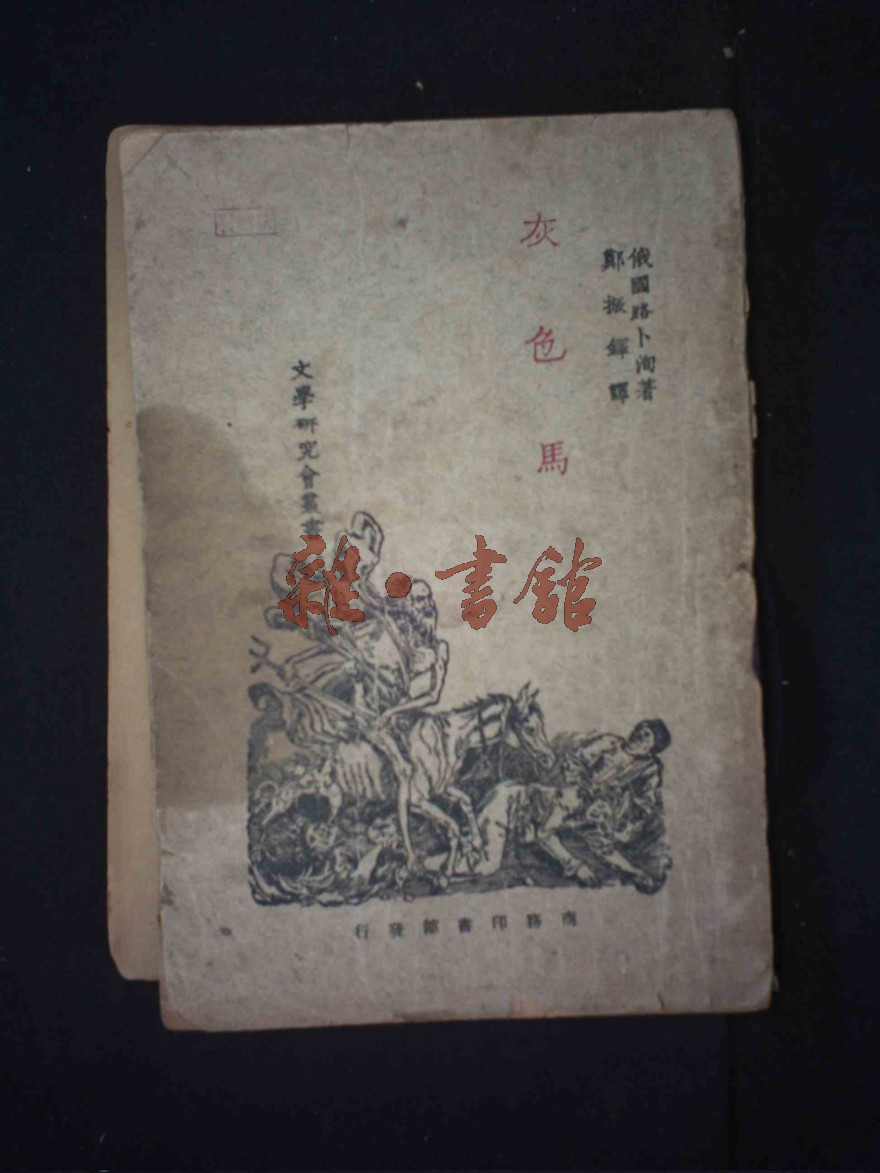 俄國路卜洵著
鄭振鐸譯
灰色馬
文學研究會叢書
雜·書舘
商務印書館發行